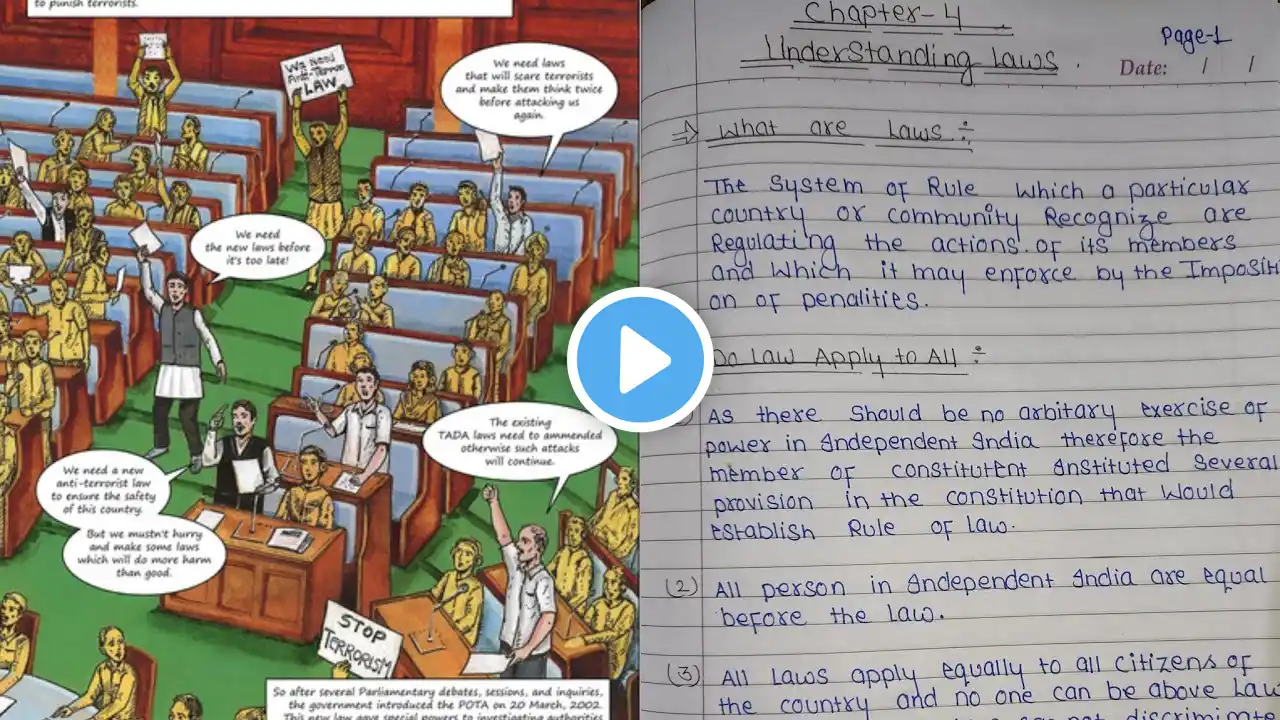 to punish terrorists.
We Need
Anti-Terror
LAW
We need laws
that will scare terrorists
and make them think twice
before attacking us
again.
We need
the new laws before
it's too late!
The existing
TADA laws need to ammended
otherwise such attacks
will continue.
We need a new
anti-terrorist law
to ensure the safety
of this country.
But we mustn't hurry
and make some laws
which will do more harm
than good.
STOP
TERRORISM
So after several Parliamentary debates, sessions, and inquiries,
the government introduced the POTA on 20 March, 2002.
This new law gave special powers to investigating authorities
Chapter-4
Understanding Laws.
Page-1
Date: / /
⇒ What are Laws ÷
The System of Rule which a particular
country or community Recognize are
Regulating the actions of its members
and which it may enforce by the Impositi
on of penalities.
Do Law Apply to All ÷
As there should be no arbitary exercise of
power in Independent India therefore the
member of constitutent Instituted Several
provision in the constitution that would
establish Rule of law.
(2) All person in Independent India are equal
before the law.
(3) All Laws apply equally to all citizens of
the country and no one can be above law